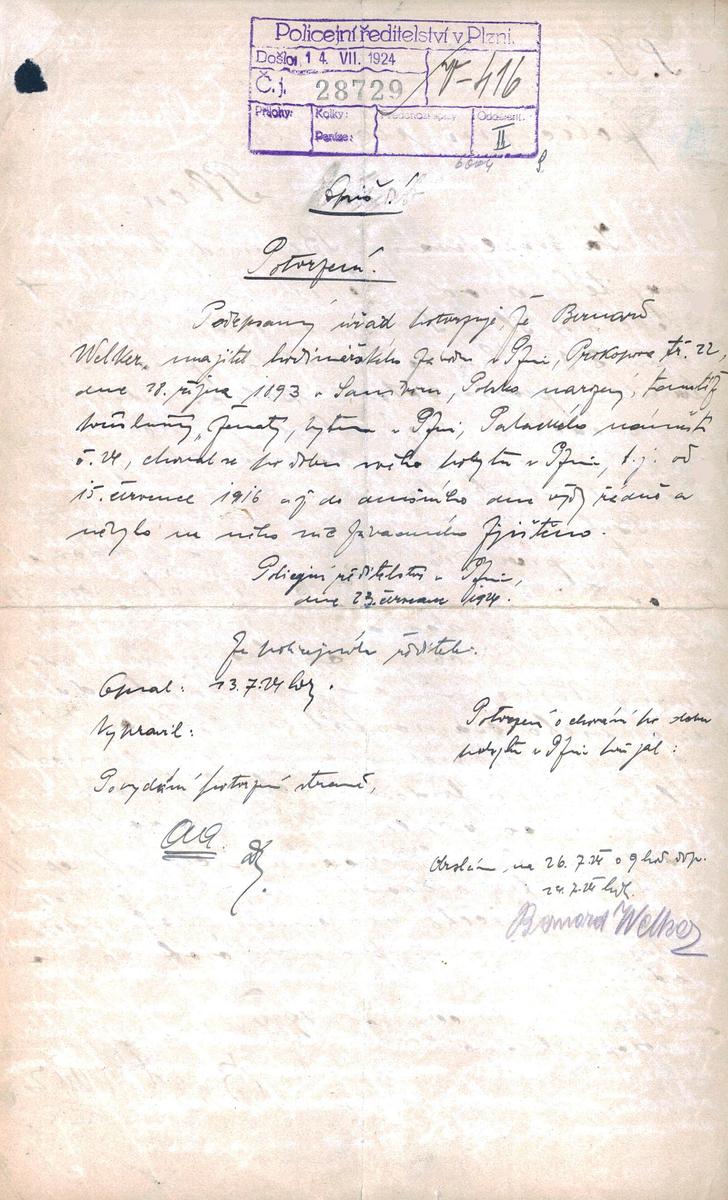 Policejní ředitelství v Plzni.
Došlo: 14. VII. 1924
Č. j. 28729
V-416
Přílohy:
Kolky:
Peníze:
Oddělení:
II
Opiš!
Potvrzení.
Podepsaný úřad potvrzuje, že Bernard
Welker, majitel hodinářského závodu v Plzni, Prokopova tř. 22,
dne 28. října 1893 v Polsko narozený, tamtéž
příslušný, ženatý, bytem v Plzni, Palackého náměstí
č. 24, choval se po dobu svého pobytu v Plzni, t. j. od
15. července 1916 až do dnešního dne vždy řádně a
nebylo na něho nic závadného zjištěno.
Policejní ředitelství v Plzni,
dne 23. července 1924.
Za policejního ředitele:
Opsal: 23.7.24
Vypravil:
Po vydání potvrzení straně,
a/a
Potvrzení o chování po dobu
pobytu v Plzni přijal:
na 26.7.24 o 9 hod. dop.
24.7.24
Bernard Welker